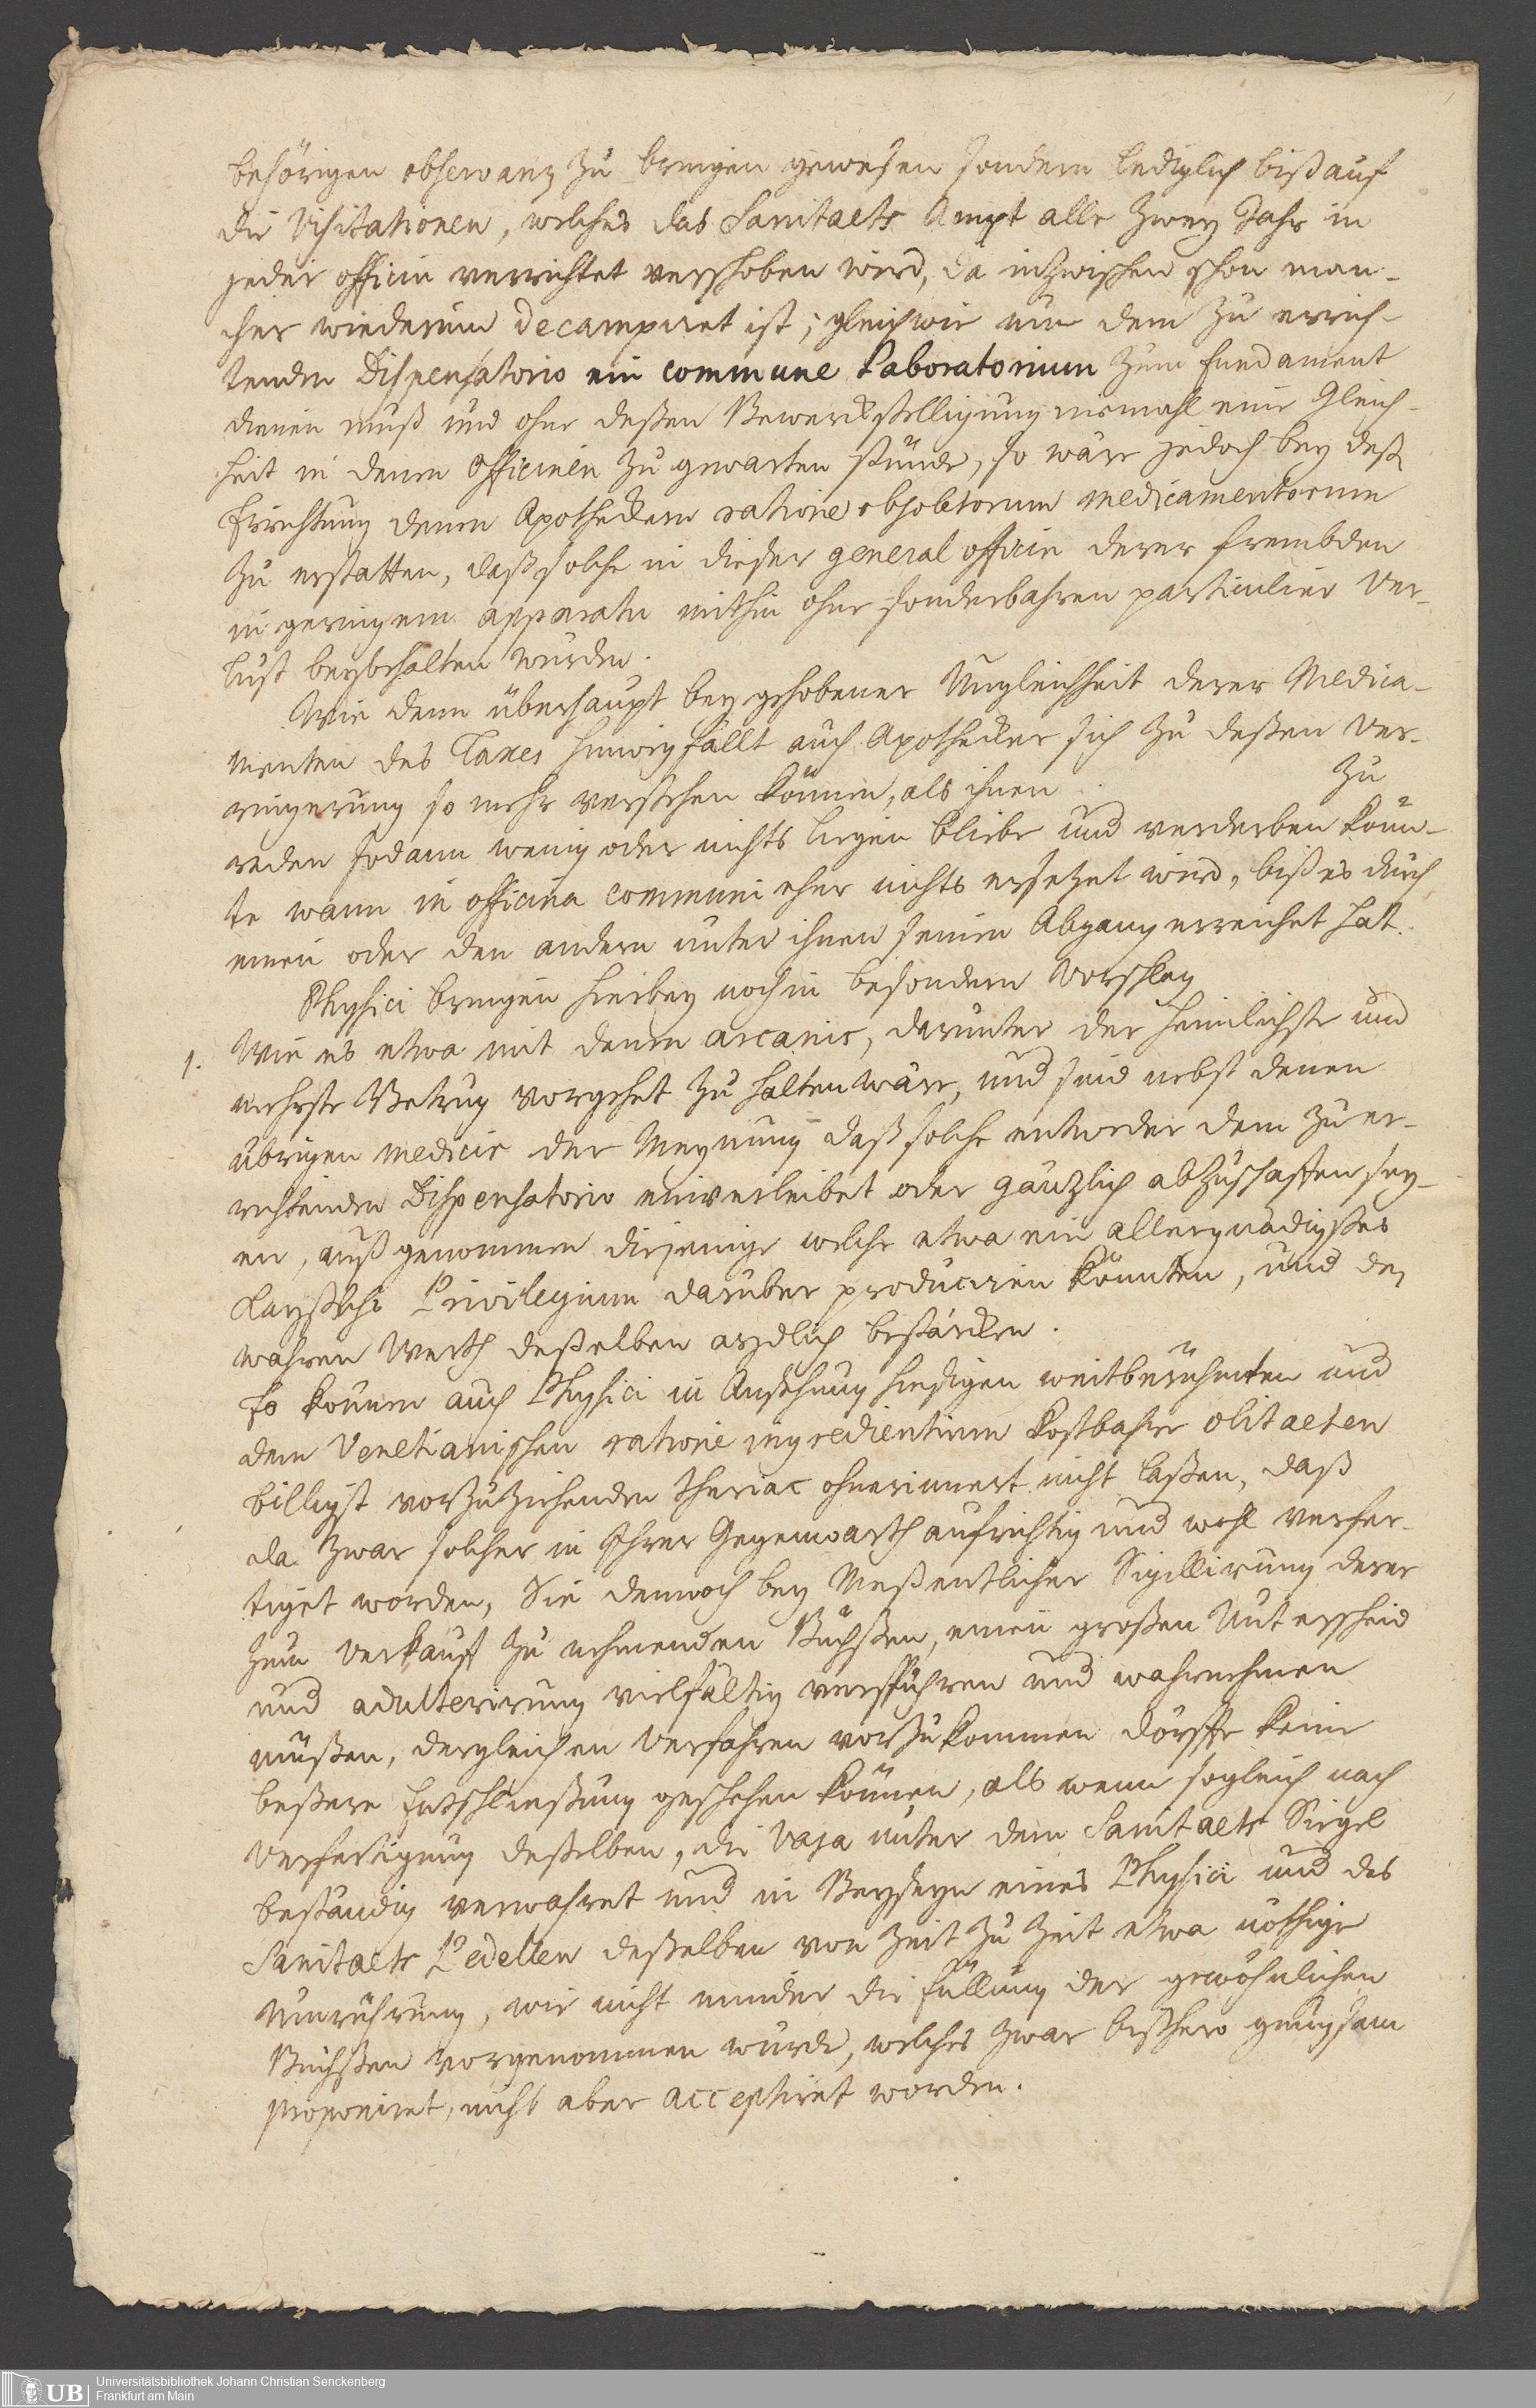 behörigen observanz zu bringen gewesen sondern lediglich biß auf
die Visitationen, welches das Sanitaets Ampt alle zwey Jahr in
jeder officin verrichtet verschoben wird, da inzwischen schon man-
cher wiederum decampiret ist; gleichwie nun dem zu errich-
tenden Dispensatorio ein commune Laboratorium zum fundament
dienen muß und ohne deßen Bewerckstelligung niemahl eine Gleich-
heit in denen Officinen zu gewarten stünde, so wäre jedoch bey deß
Errichtung denen Apotheckern ratione obsoletorum medicamentorum
zu erstatten, daß solche in dieser general officin derer frembden
in geringem apparatu mithin ohne sonderbahren particulier Ver-
lust beybehalten würden.
Wie denn überhaupt bey gehobener Ungleichheit derer Medica-
menten des Taxes hinweg fällt auch Apothecker sich zu deßen Ver-
ringerung so mehr verstehen können, als ihnen zu
reden sodann wenig oder nichts liegen bliebe und verderben könn-
te wann in officina communi eher nichts ersetzet wird, biß es durch
einen oder den andern unter ihnen seinen Abgang erreichet hat.
Physici bringen hierbey noch in besondern Vorschlag
1. Wie es etwa mit denen arcanis, darunter der heimlichste und
mehrste Betrug vorgehet zu halten wäre, und sind nebst denen
übrigen medicis der Meynung daß solche entweder dem zu er-
richtenden Dispensatorio einverleibet oder gäntzlich abzuschaffen sey-
en, außgenommen diejenige welche etwa ein allergnädigstes
Kayserliche Privilegium darüber produciren könnten, und den
wahren Werth deßelben aydlich bestärcken.
So können auch Physici in Ansehung hiesigen weitberühmten und
dem Venetianischen ratione ingredientium kostbahre olitaeten
billigst vorzuziehenden Theriac ohnerinnert nicht laßen, daß
da zwar solcher in Ihrer Gegenwarth aufrichtig und wohl verfer-
tiget worden, Sie dennoch bey Meßentlicher Sigillirung derer
zum Verkauf zu nehmenden Büchßen, einen großen Unterscheid
und adulterirung vielfältig verspühren und wahrnehmen
müßen, dergleichen Verfahren vorzukommen dörffte keine
beßere Entschließung geschehen können, als wenn sogleich nach
Verfertigung deßelben, die Vasa unter dem Sanitaets Siegel
beständig verwahret und in Beyseyn eines Physici und des
Sanitaets Pedellen deßelben von Zeit zu Zeit etwa nöthige
Umrührung, wie nicht minder die Füllung der gewöhnlichen
Büchßen vorgenommen würde, welches zwar bißhero gnugsam
proponiret, nicht aber acceptiret worden.
Universitätsbibliothek Johann Christian Senckenberg
Frankfurt am Main
UB